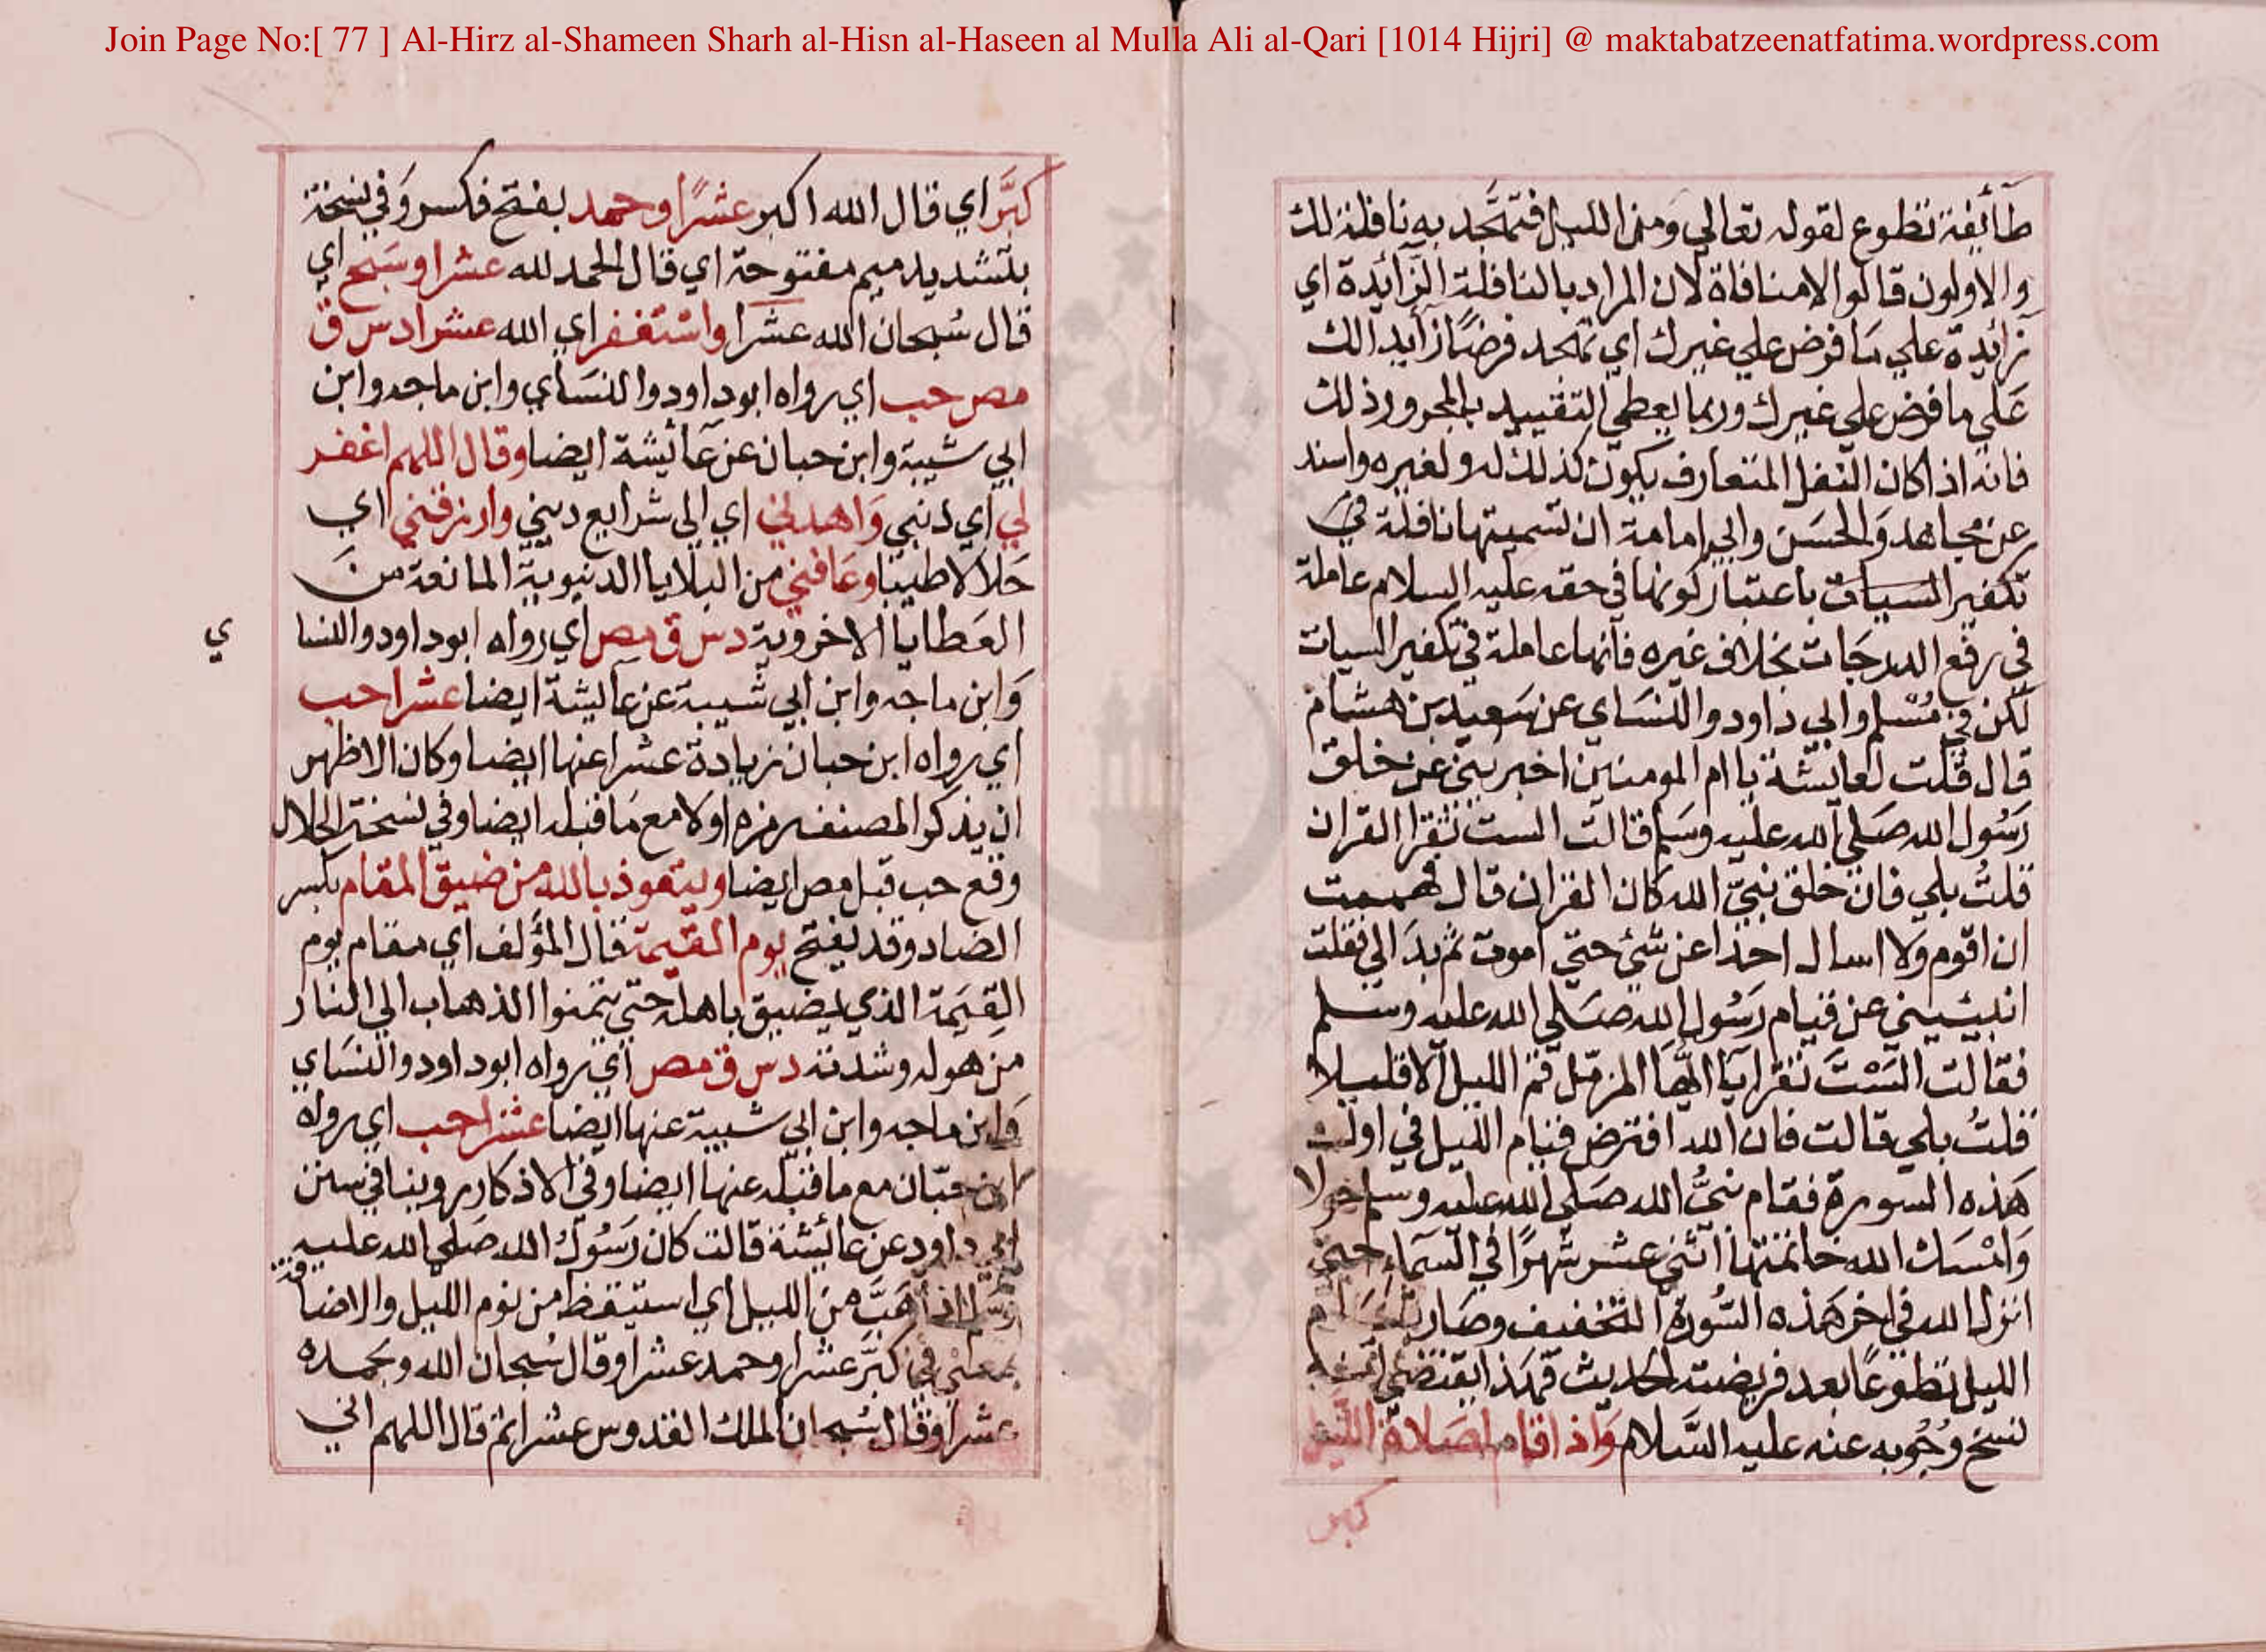 Join Page No:[ 77 ] Al-Hirz al-Shameen Sharh al-Hisn al-Haseen al Mulla Ali al-Qari [1014 Hijri] @ maktabatzeenatfatima.wordpress.com
طائفة تطوع لقوله تعالي ومن الليل فتهجد به نافلة لك
والاولون قالوا لامنافاة لان المراد بالنافلة الزائدة اي
زائدة علي ما فرض علي غيرك اي تهجد فرضا زايدا لك
علي ما فرض علي غيرك وربما يعطي التقييد بالمجرور ذلك
فانه اذا كان النفل المتعارف يكون كذلك له ولغيره واسند
عن مجاهد والحسن وابي امامة ان تسميتها نافلة في
تكفير السيات باعتبار كونها في حقه عليه السلام عاملة
في رفع الدرجات بخلاف غيره فانها عاملة في تكفير السيات
لكن في مسلم وابي داود والنساي عن سعيد بن هشام
قال قلت لعايشة يا ام المومنين اخبريني عن خلق
رسول الله صلي الله عليه وسلم قالت الست تقرا القران
قلت بلي فان خلق نبي الله كان القران قال فهممت
ان اقوم ولا اسال احدا عن شئ حتي اموت ثم بدا لي فقلت
انبئيني عن قيام رسول الله صلي الله عليه وسلم
فقالت الست تقرا يا ايها المزمل قم الليل الا قليلا
قلت بلي قالت فان الله افترض قيام الليل في اول
هذه السورة فقام نبي الله صلي الله عليه وسلم حولا
وامسك الله خاتمتها اثني عشر شهرا في السماء حتي
انزل الله في اخر هذه السورة التخفيف وصار قيام
الليل تطوعا بعد فريضته الحديث فهذا يقتضي
نسخ وجوبه عنه عليه السلام واذا قام لصلاة الليل
كبر
كبر اي قال الله اكبر عشرا وحمد بفتح فكسر وفي نسخة
بتشديد ميم مفتوحة اي قال الحمد لله عشرا وسبح اي
قال سبحان الله عشرا واستغفر اي الله عشرا د س ق
مص حب اي رواه ابو داود والنساي وابن ماجه وابن
ابي شيبة وابن حبان عن عايشة ايضا وقال اللهم اغفر
لي اي ذنبي واهدني اي الي شرايع ديني وارزقني اي
حلالا طيبا وعافني من البلايا الدنيوية المانعة من
العطايا الاخروية د س ق مص اي رواه ابو داود والنسا
ي
وابن ماجه وابن ابي شيبة عن عايشة ايضا عشرا حب
اي رواه ابن حبان زيادة عشرا عنها ايضا وكان الاظهر
ان يذكر المصنف رمزه اولا مع ما قبله ايضا وفي نسخة الجلال
وقع حب قبل مص ايضا ويتعوذ بالله من ضيق المقام بكسر
الضاد وقد يفتح يوم القيمة قال المؤلف اي مقام يوم
القيمة الذي يضيق باهله حتي يتمنوا الذهاب الي النار
من هوله وشدته د س ق مص اي رواه ابو داود والنساي
وابن ماجه وابن ابي شيبة عنها ايضا عشرا حب اي رواه
ابن حبان مع ما قبله عنها ايضا وفي الاذكار روينا في سنن
ابي داود عن عائشة قالت كان رسول الله صلي الله عليه
وسلم اذا هب من الليل اي استيقظ من نوم الليل والاضافة
بمعني في كبر عشرا وحمد عشرا وقال سبحان الله وبحمده
عشرا وقال سبحان الملك القدوس عشرا ثم قال اللهم اني